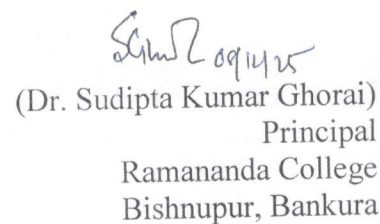 (Dr. Sudipta Kumar Ghorai)
Principal
Ramananda College
Bishnupur, Bankura